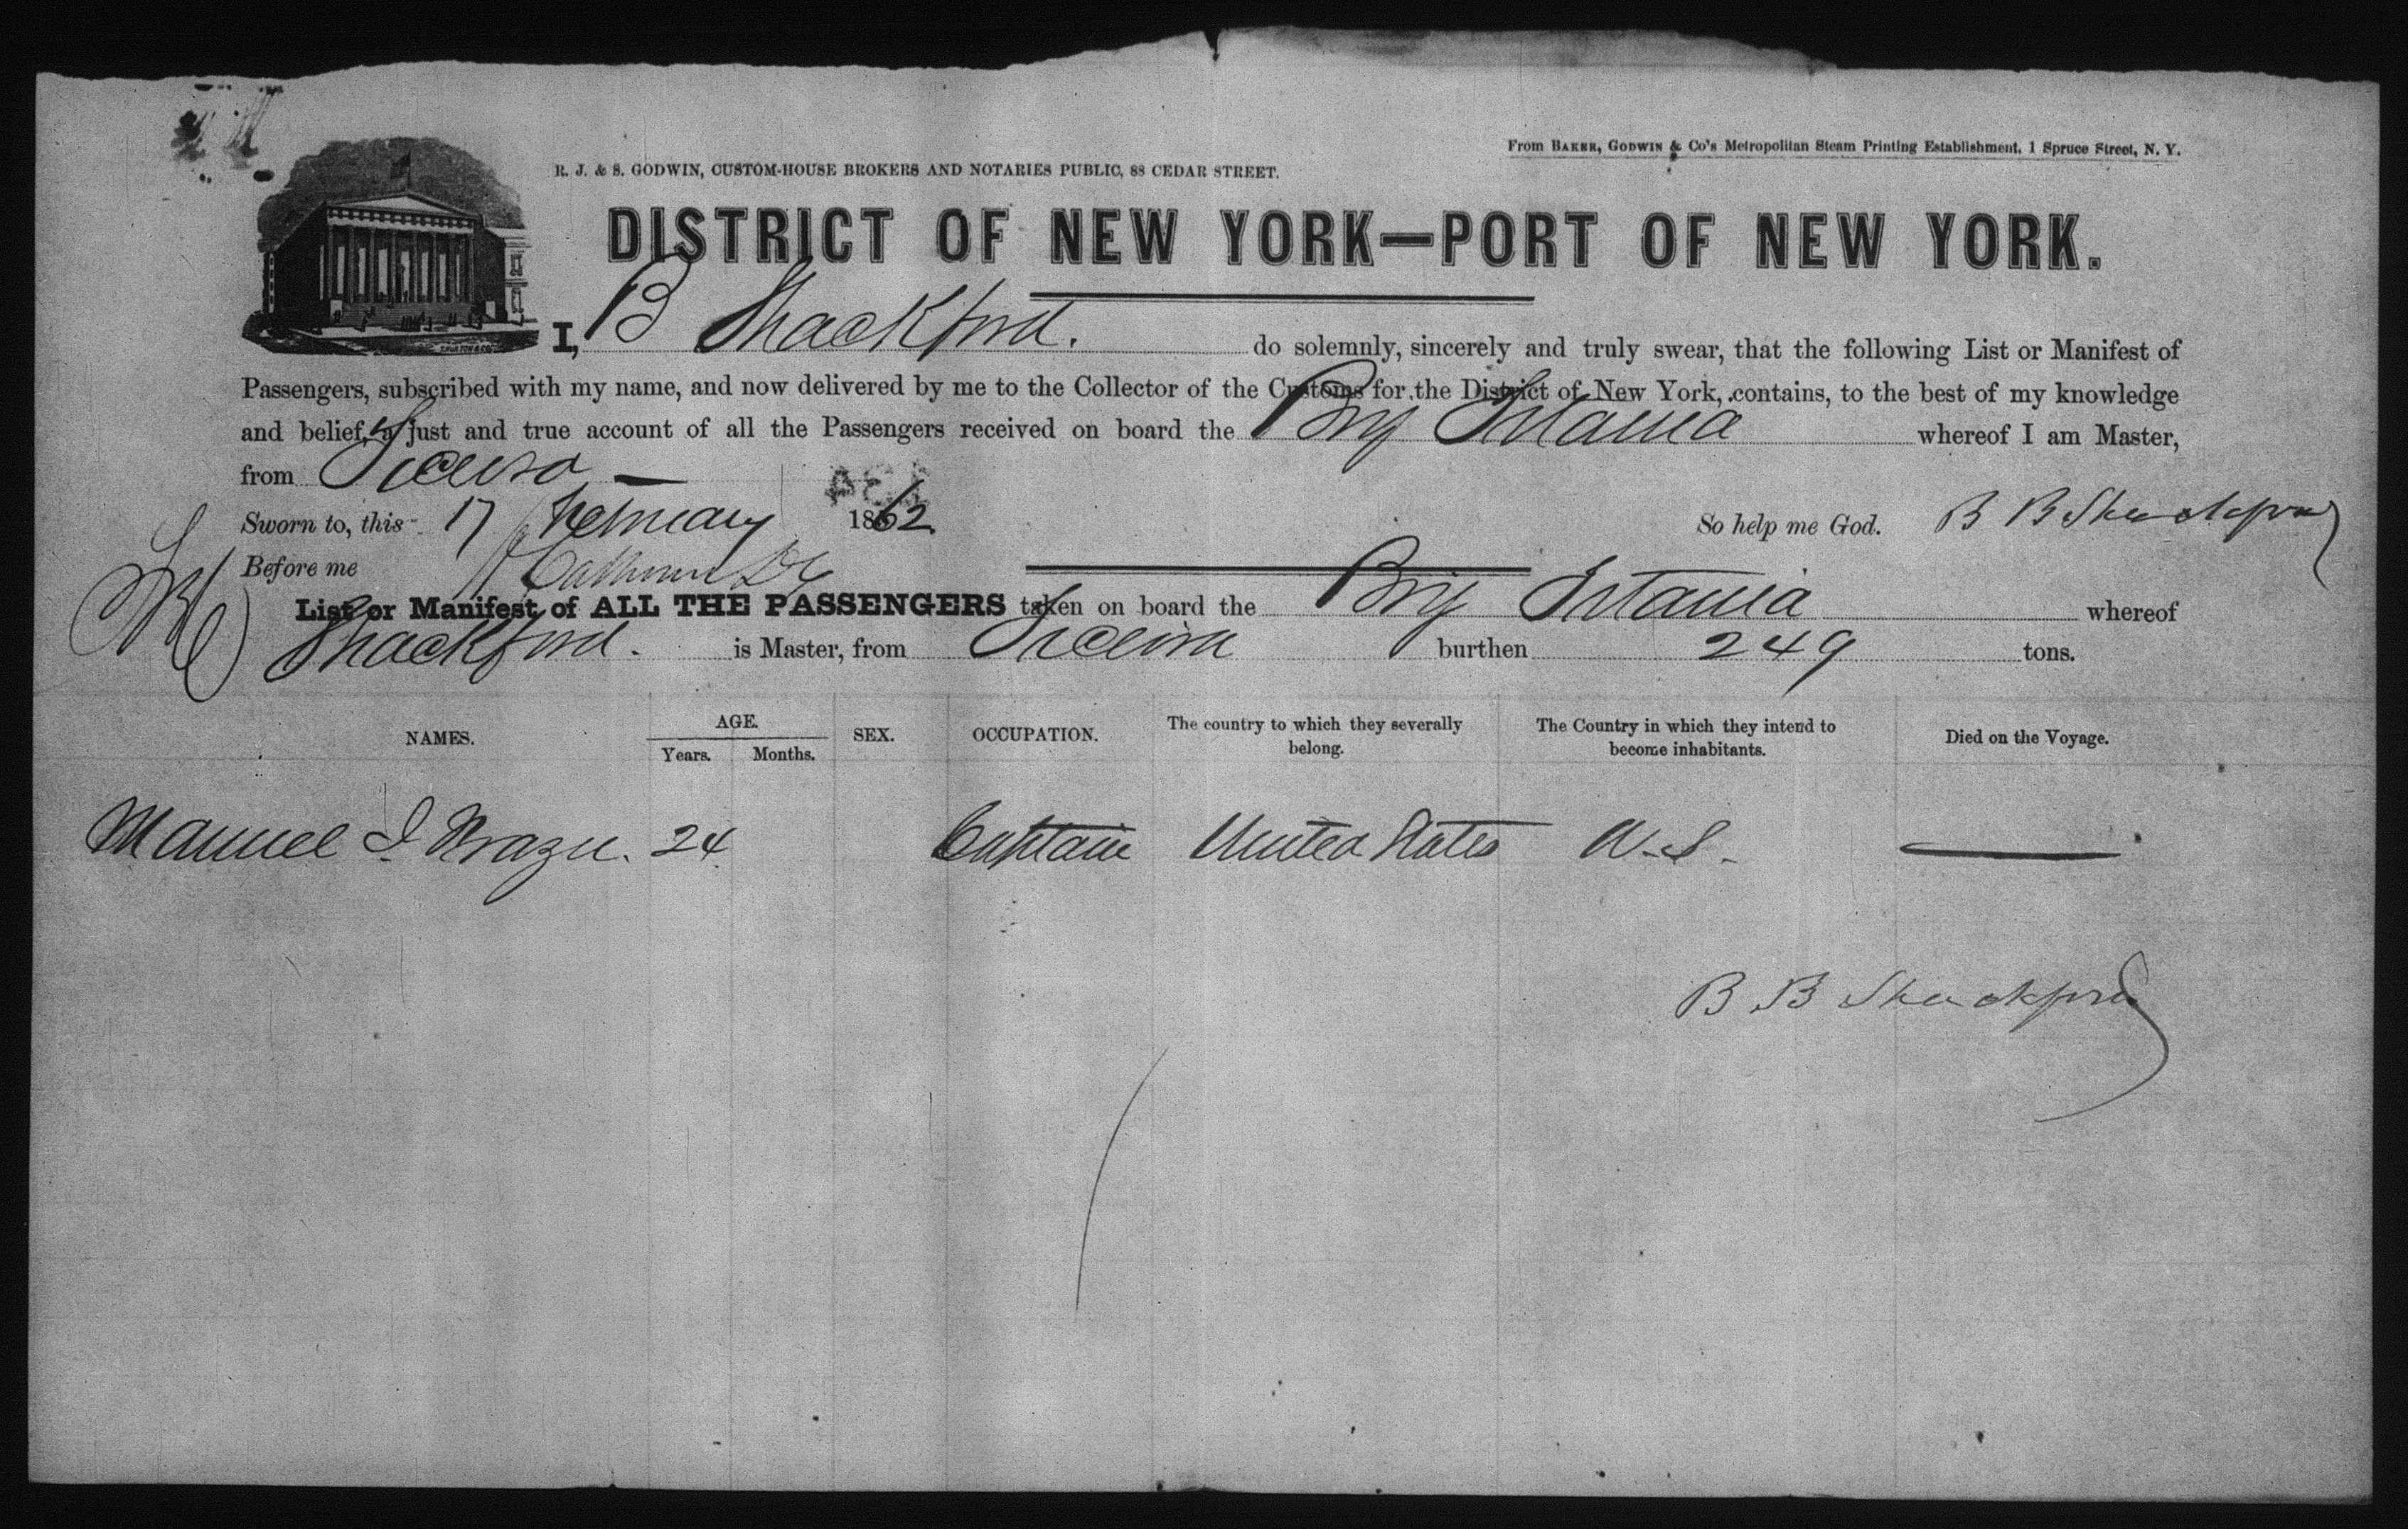 From BAKER, GODWIN & Co's Metropolitan Steam Printing Establishment, 1 Spruce Street, N. Y.
R. J. & S. GODWIN, CUSTOM-HOUSE BROKERS AND NOTARIES PUBLIC, 88 CEDAR STREET.
DISTRICT OF NEW YORK—PORT OF NEW YORK.
I, B Shackford. do solemnly, sincerely and truly swear, that the following List or Manifest of
Passengers, subscribed with my name, and now delivered by me to the Collector of the Customs for the District of New York, contains, to the best of my knowledge
and belief, a just and true account of all the Passengers received on board the Brig whereof I am Master,
from
Sworn to, this 17 February 1862 So help me God. B B Shackford
Before me
List or Manifest of ALL THE PASSENGERS taken on board the Brig whereof
Shackford. is Master, from burthen 249 tons.
NAMES. AGE. Years. Months. SEX. OCCUPATION. The country to which they severally belong. The Country in which they intend to become inhabitants. Died on the Voyage.
Manuel 24 Captain United States U.S.
B B Shackford